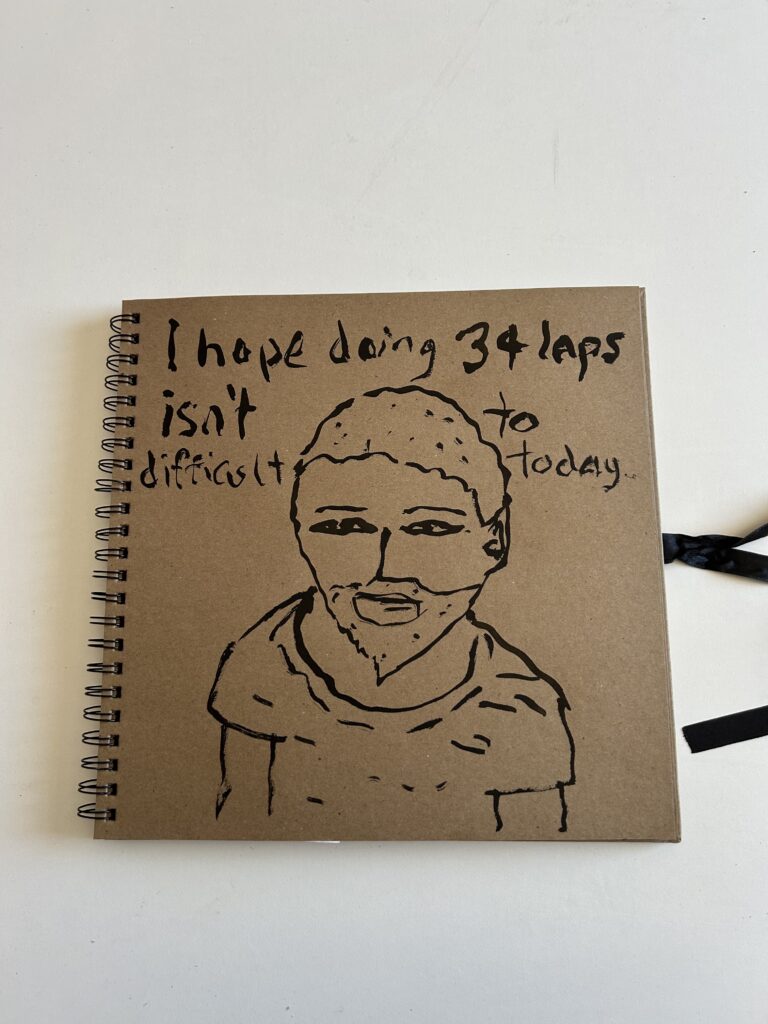 I hope doing 34 laps
isn't to
difficult today.